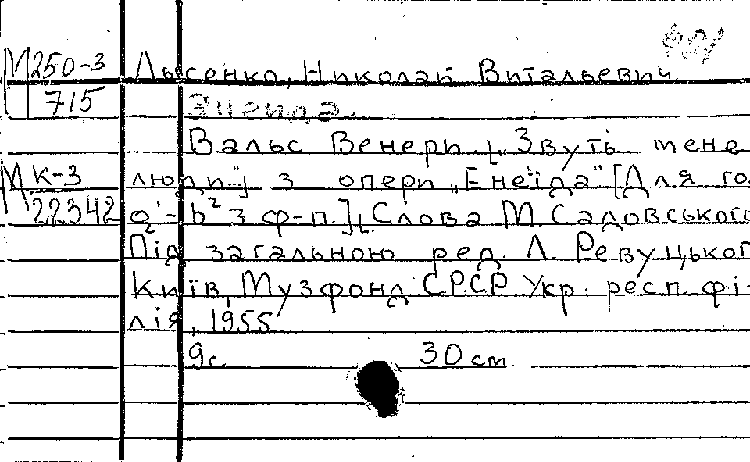 М 250-3 Лысенко, Николай Витальевич
715 Энеида.
Вальс Венери [„Звуть мене
М К-3 люди"] з опери „Енеїда" [Для го
22342 a'-h² з ф-п.]. Слова М. Садовського
Під загальною ред. Л. Ревуцького
Київ, Музфонд СРСР Укр. респ. фі-
лія, 1955
9с. 30 см